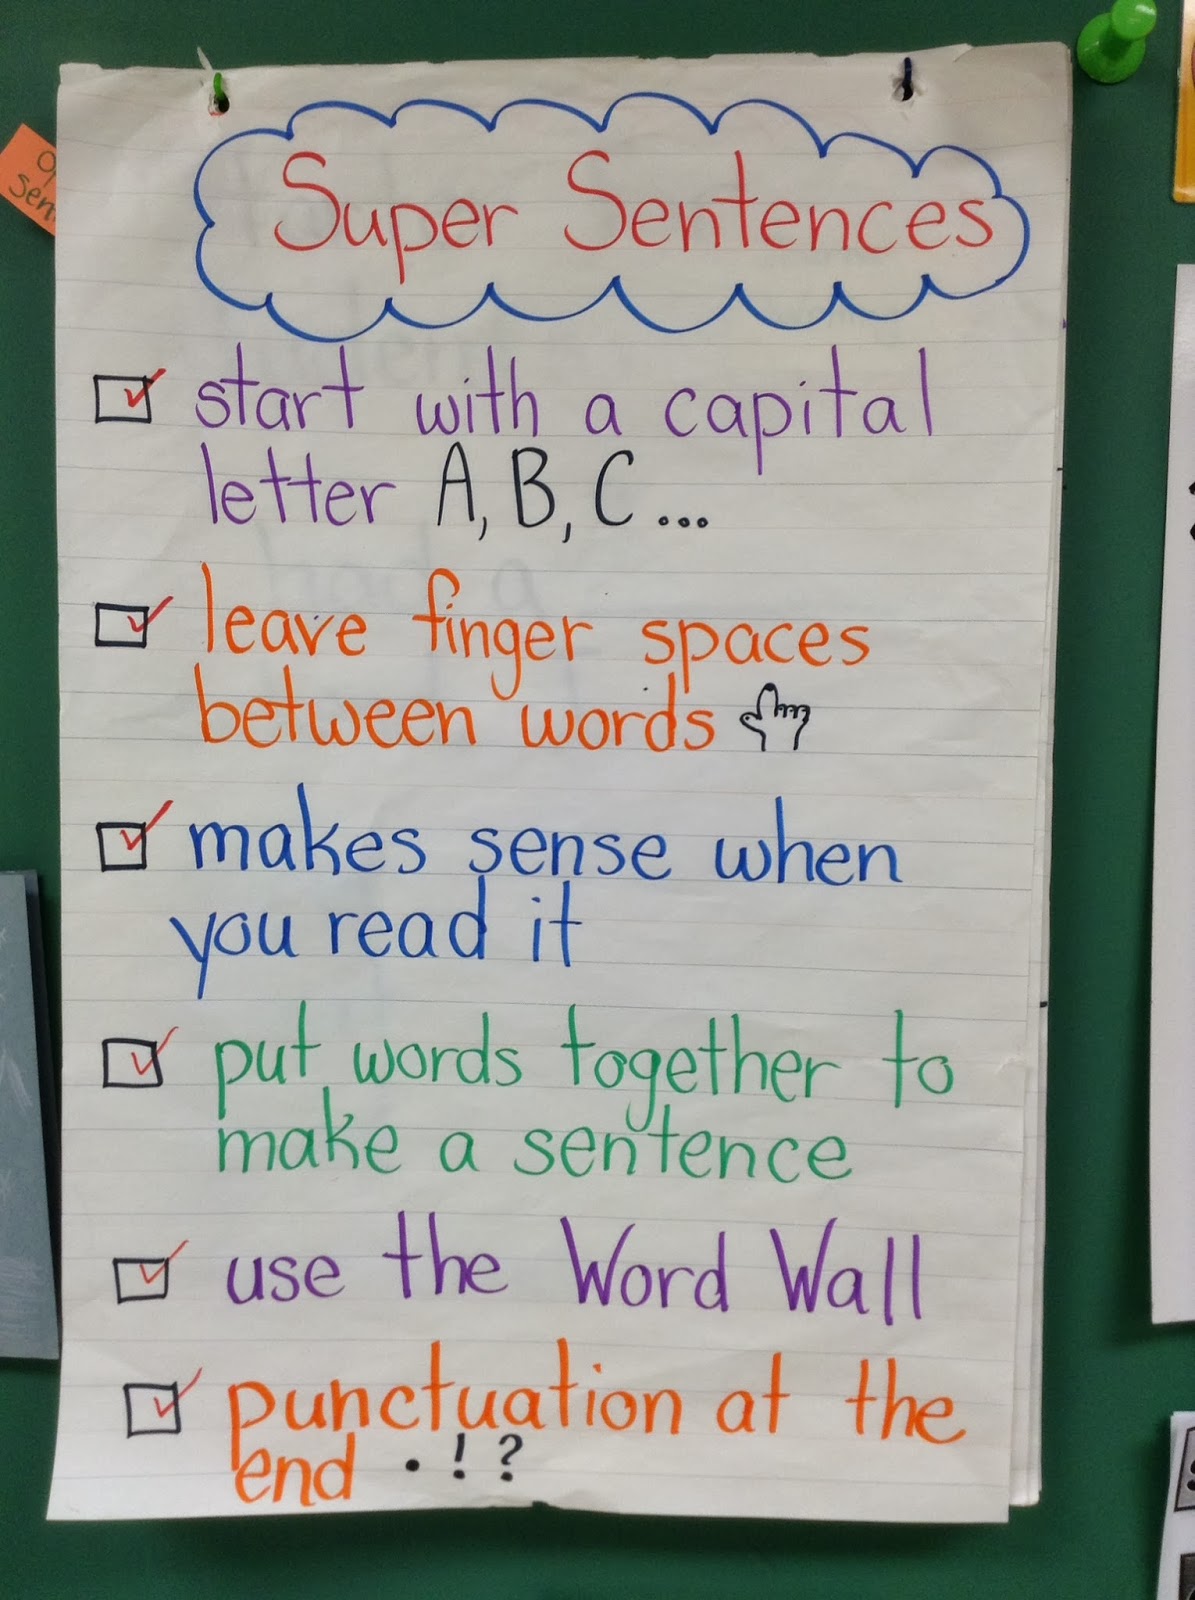 Super Sentences
start with a capital
letter A, B, C...
leave finger spaces
between words
makes sense when
you read it
put words together to
make a sentence
use the Word Wall
punctuation at the
end . ! ?